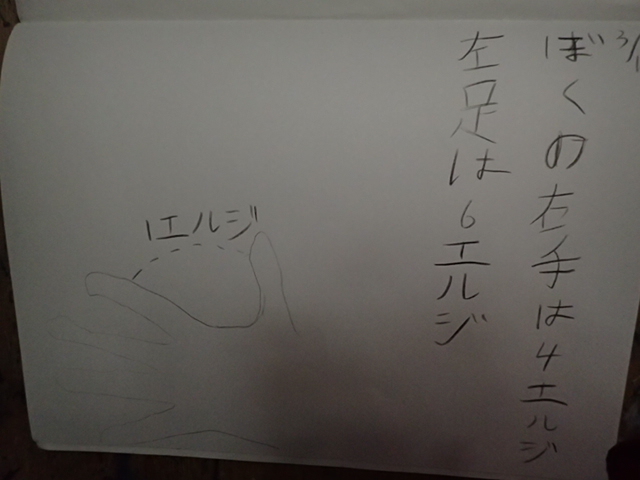 3/1
ぼくの右手は4エルジ
左足は6エルジ
1エルジ